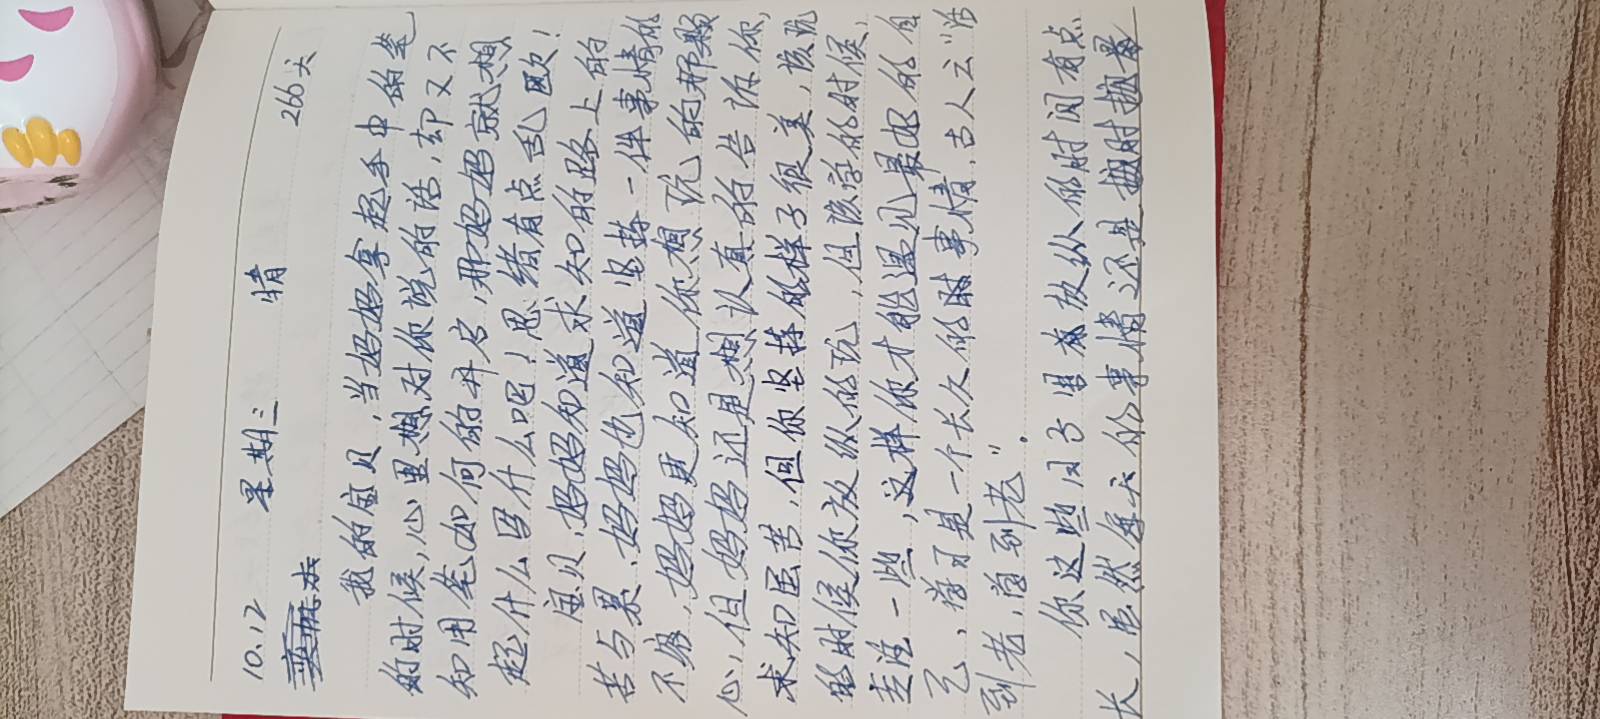 10.12 星期三 晴
266天
我的宝贝,当妈妈拿起手中的笔
的时候,心里想对你说的话,却又不
知用笔如何的开启,那妈妈就想
起什么写什么吧!思绪有点乱欧!
宝贝,妈妈知道求知的路上的
苦与累、妈妈也知道坚持一件事情的
不易,妈妈更知道你想玩的那颗
心,但妈妈还是想认真的告诉你,
求知虽苦,但你坚持的样子很美,该玩
的时候你放纵的玩,但该学的时候,
专注一些,这样你才能遇见最好的自
己,学习是一个长久的时事情,古人云"活
到老,学到老"。
你这些日子里放纵的时间有点
长,虽然每天的事情还是按时按量